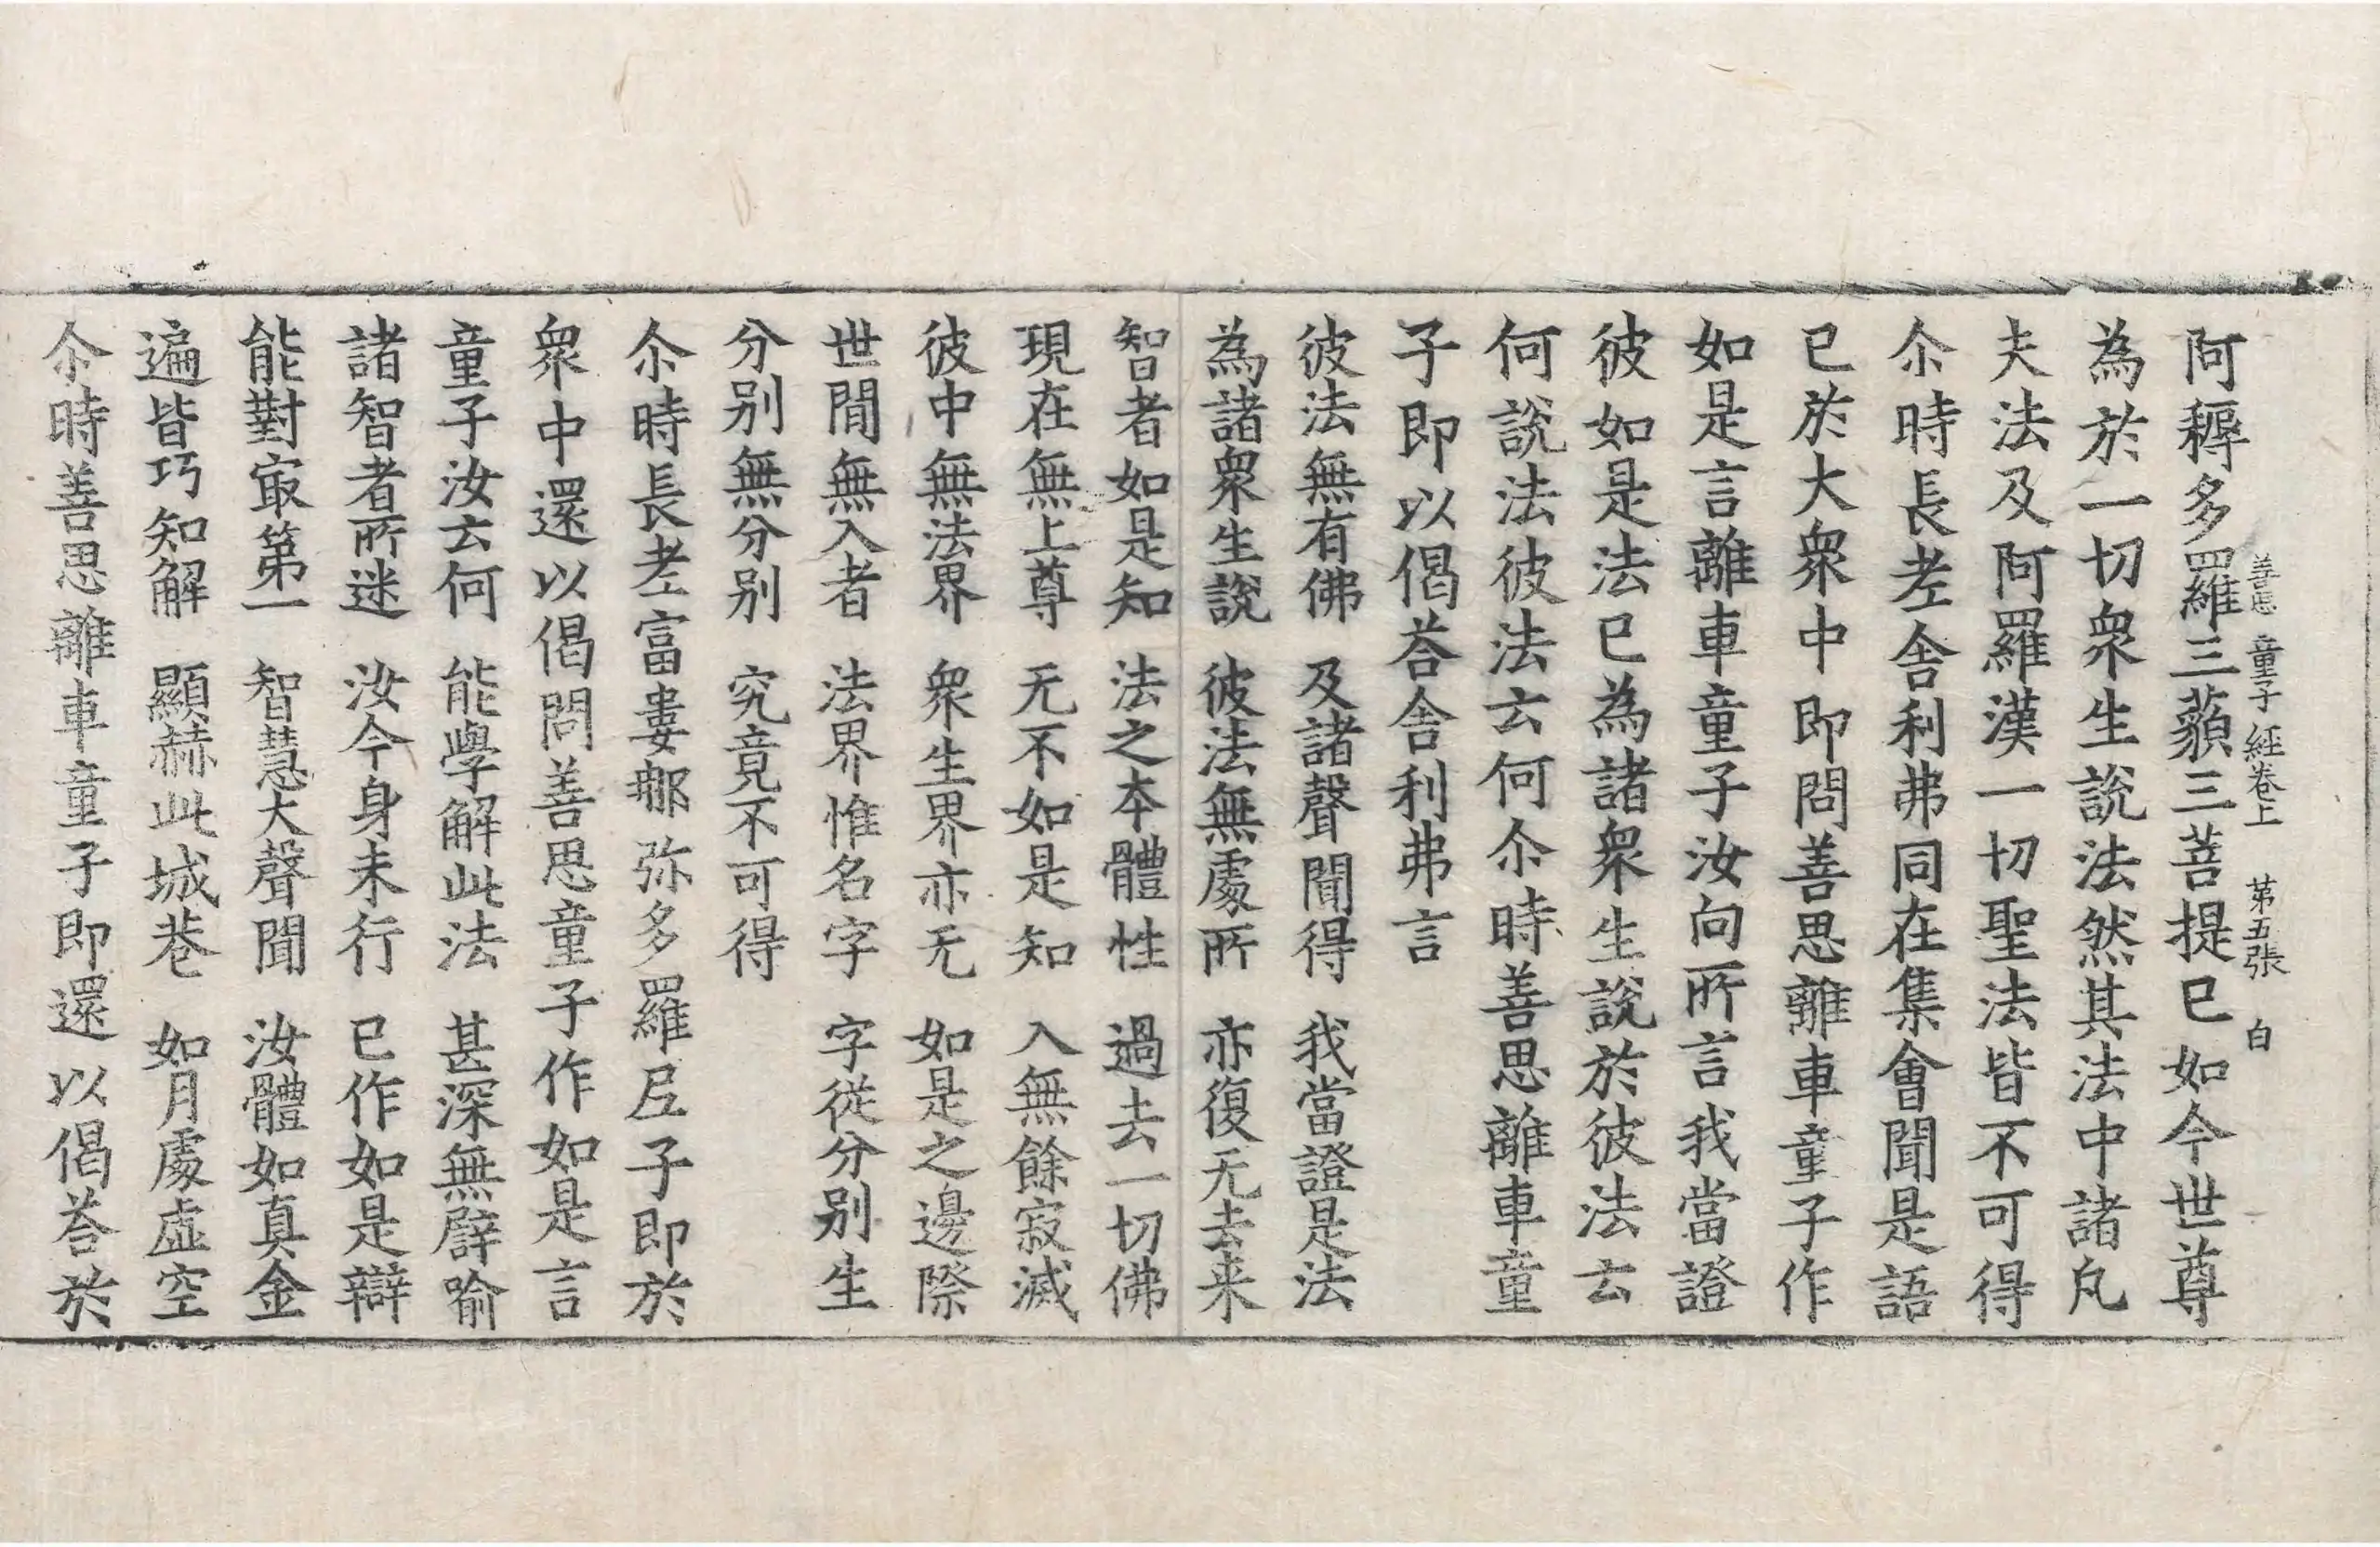 善思童子經卷上 第五張 白
阿耨多羅三藐三菩提已如今世尊
為於一切衆生說法然其法中諸凡
夫法及阿羅漢一切聖法皆不可得
尒時長老舍利弗同在集會聞是語
已於大衆中即問善思離車童子作
如是言離車童子汝向所言我當證
彼如是法已為諸衆生說於彼法云
何說法彼法云何尒時善思離車童
子即以偈荅舍利弗言
彼法無有佛 及諸聲聞得 我當證是法
為諸衆生說 彼法無處所 亦復无去来
智者如是知 法之本體性 過去一切佛
現在無上尊 无不如是知 入無餘寂滅
彼中無法界 衆生界亦无 如是之邊際
世間無入者 法界惟名字 字從分别生
分别無分别 究竟不可得
尒時長老富婁那弥多羅尼子即於
衆中還以偈問善思童子作如是言
童子汝云何 能學解此法 甚深無譬喻
諸智者所迷 汝今身未行 已作如是辯
能對冣第一 智慧大聲聞 汝體如真金
遍皆巧知解 顯赫此城巷 如月處虛空
尒時善思離車童子即還以偈荅於